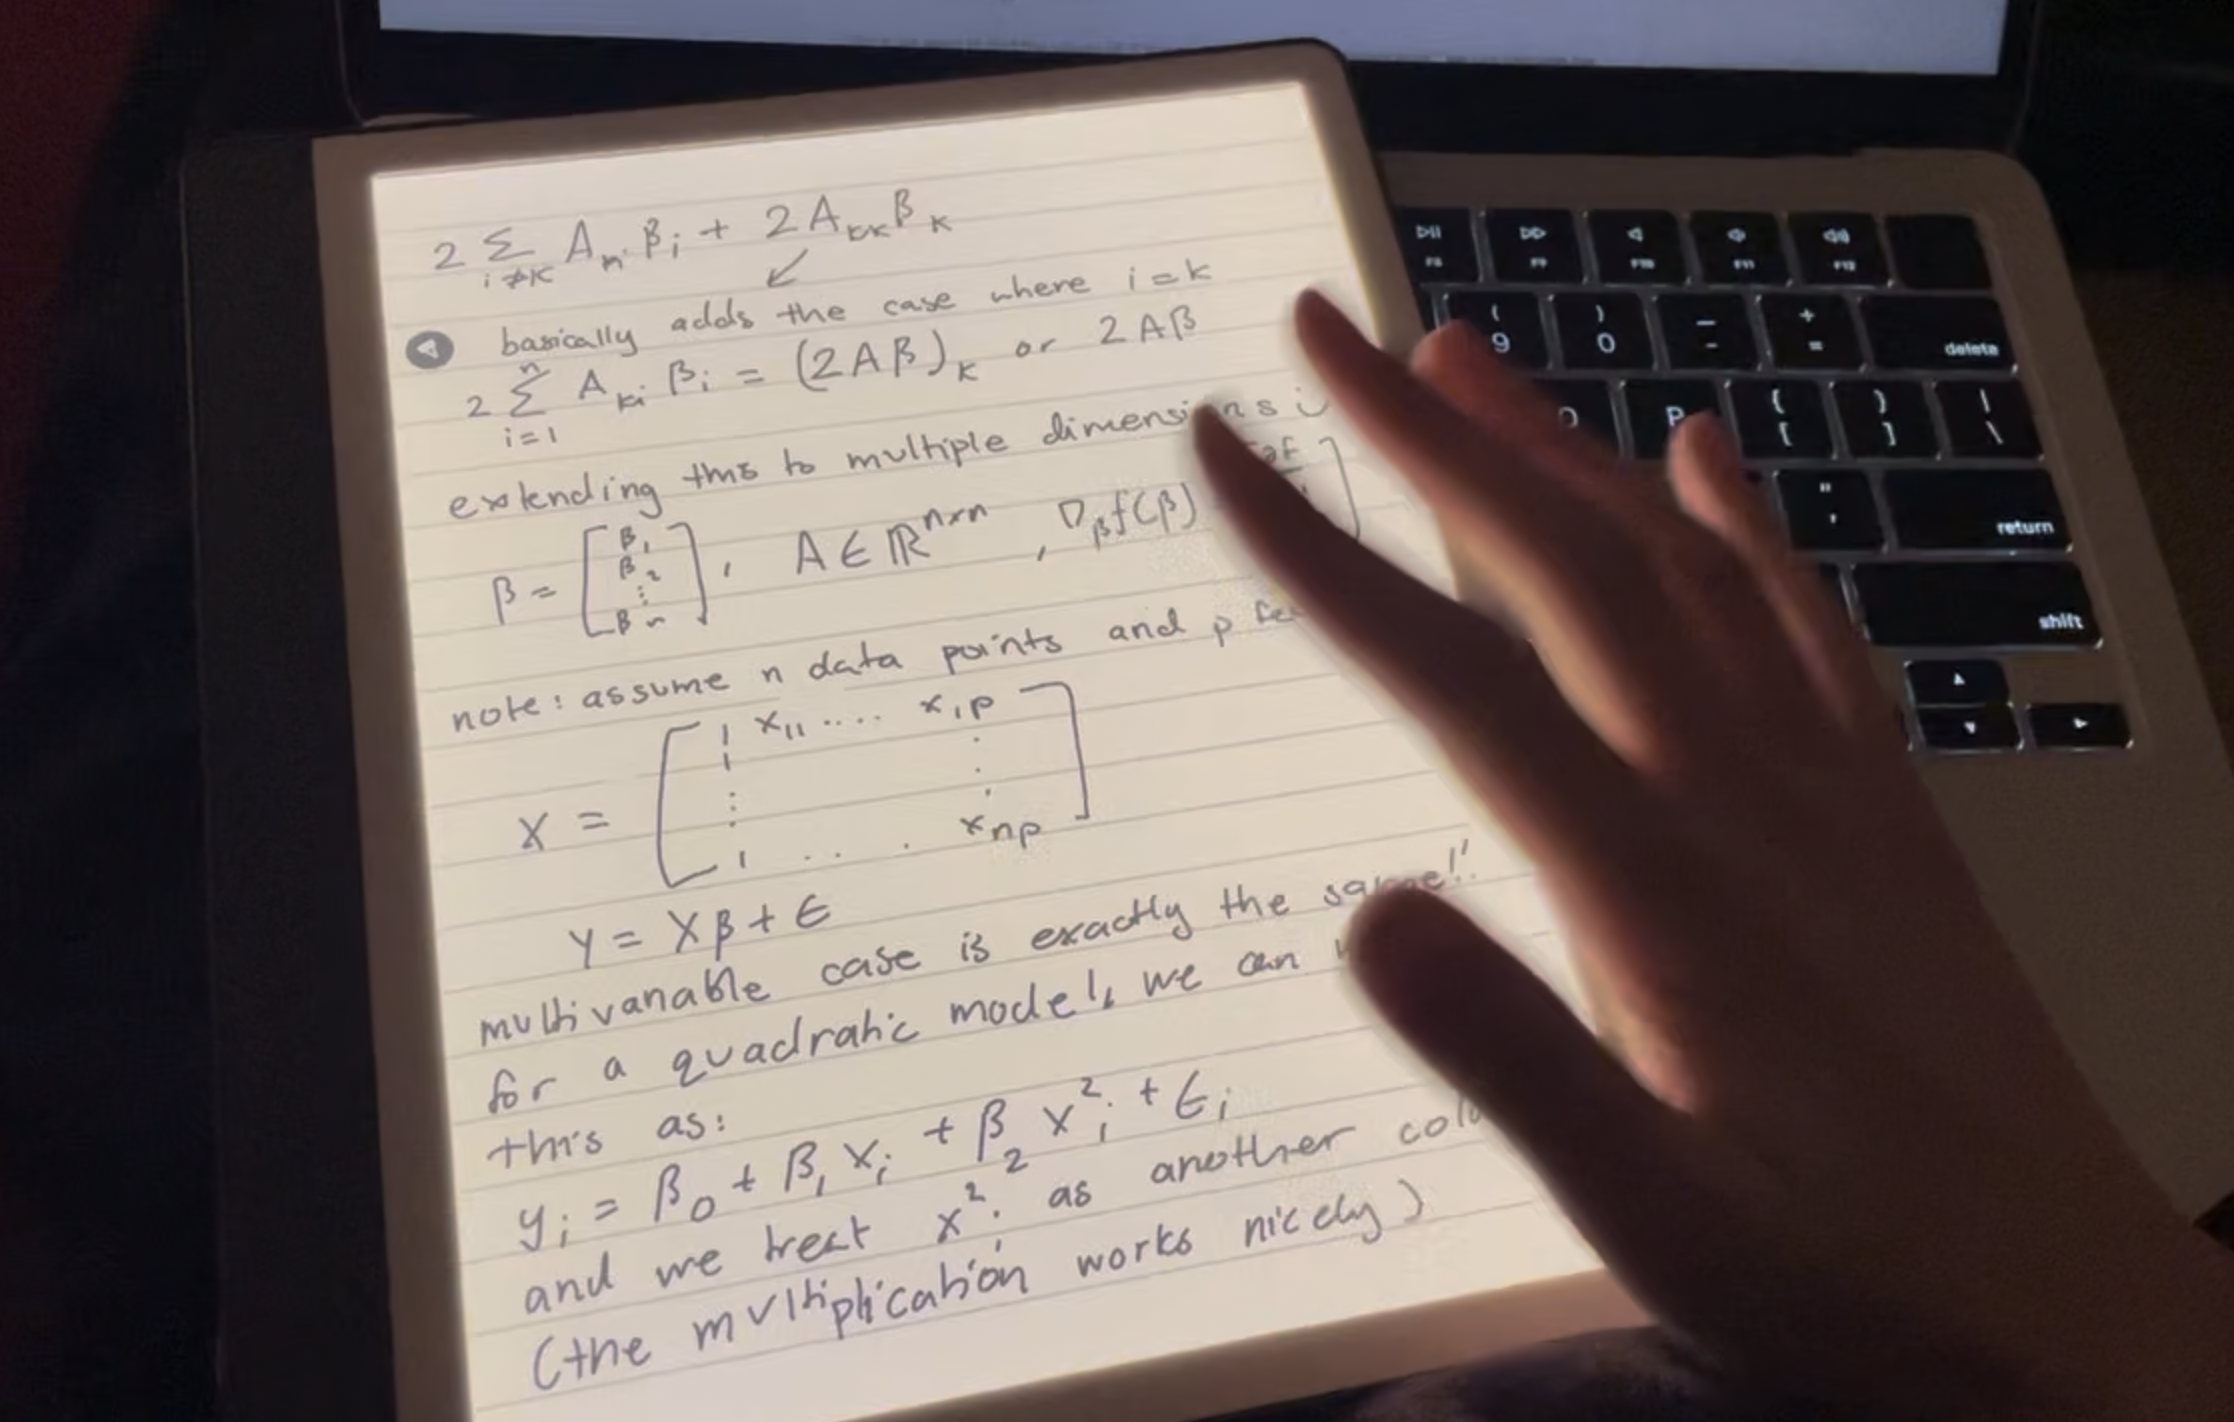 2 Σ A βi + 2 Akk βk
i≠k
basically adds the case where i = k
n
2 Σ Aki βi = (2Aβ)k or 2Aβ
i=1
extending this to multiple dimensions
β = [β1 β2 ⋮ βn], A ∈ ℝn×n, ∇βf(β)
note: assume n data points and p
X = [1 x11 .... x1p
1 ⋮
⋮
1 . . . xnp]
Y = Xβ + ϵ
multivariable case is exactly the same!!
for a quadratic model, we can
this as:
yi = β0 + β1 xi + β2 x²i + ϵi
and we treat x²i as another
(the multiplication works nicely)
F8 F9 F10 F11 F12
( 9 ) 0 _ - + = delete
P { [ } ] | \
" ' return
shift